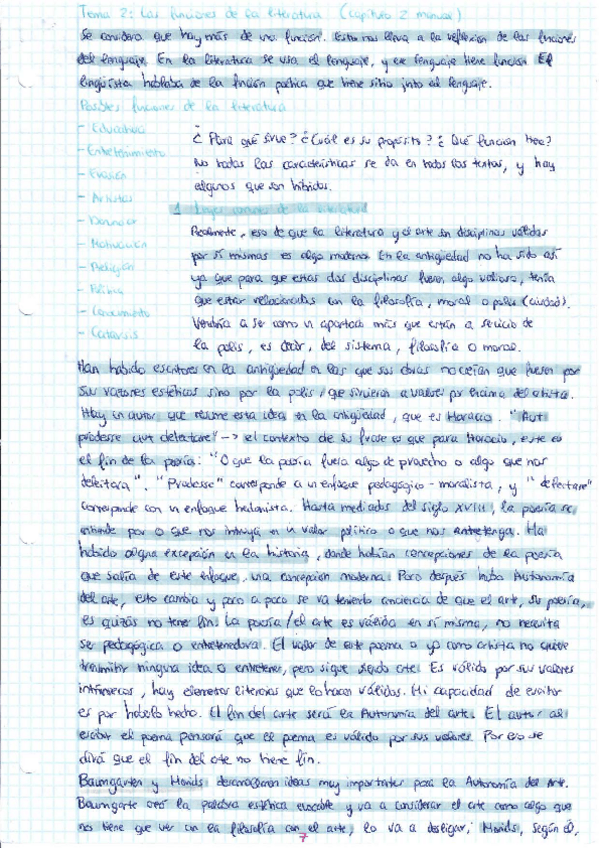 Tema 2: Las funciones de la literatura (capítulo 2 manual)
Se considera que hay más de una función. Esto nos lleva a la reflexión de las funciones
del lenguaje. En la literatura se usa el lenguaje, y ese lenguaje tiene función. El
lingüista hablaba de la función poética que tiene sitio junto al lenguaje.
Posibles funciones de la literatura
- Educativa
- Entretenimiento
- Evasión
- Artística
- Denuncia
- Motivación
- Religión
- Política
- Conocimiento
- Catarsis
¿Para qué sirve? ¿Cuál es su propósito? ¿Qué función tiene?
No todas las características se da en todos los textos, y hay
algunos que son híbridos.
1. de la literatura
Realmente, eso de que la literatura y el arte son disciplinas válidas
por sí mismas es algo moderno. En la antigüedad no ha sido así
ya que para que estas dos disciplinas fueran algo valioso, tenía
que estar relacionadas con la filosofía, moral o polis (ciudad).
Vendría a ser como un aportación más que están a servicio de
la polis, es decir, del sistema, filosofía o moral.
Han habido escritores en la antigüedad en las que sus obras no creían que fuesen por
sus valores estéticos sino por la polis, que sirvieran a valores por encima del artista.
Hay un autor que resume esta idea en la antigüedad, que es Horacio. "Aut
prodesse aut delectare" -> el contexto de su frase es que para Horacio, este es
el fin de la poesía: "O que la poesía fuera algo de provecho o algo que nos
deleitara". "Prodesse" corresponde a un enfoque pedagógico-moralista, y "delectare"
corresponde con un enfoque hedonista. Hasta mediados del siglo XVIII, la poesía se
entiende por o que nos intruya en un valor político o que nos entretenga. Ha
habido alguna excepción en la historia, donde habían concepciones de la poesía
que salía de este enfoque, una concepción moderna. Poco después hubo Autonomía
del arte, esto cambia y poco a poco se va teniendo conciencia de que el arte, su poesía,
es quizás no tener fin. La poesía / el arte es válida en sí misma, no necesita
ser pedagógica o entretenedora. El valor de este poema o yo como artista no quiere
transmitir ninguna idea o entretener, pero sigue siendo arte. Es válido por sus valores
intrínsecos, hay elementos literarios que lo hacen válidos. Mi capacidad de escritor
es por haberlo hecho. El fin del arte será la Autonomía del arte. El autor al
escribir el poema pensará que el poema es válido por sus valores. Por eso se
dirá que el fin del arte no tiene fin.
Baumgarten y Morids: desarrollaron ideas muy importantes para la Autonomía del Arte.
Baumgarte creó la palabra estética y va a considerar el arte como algo que
nos tiene que ver con la filosofía con el arte, lo va a desligar; Morids, según él,
7